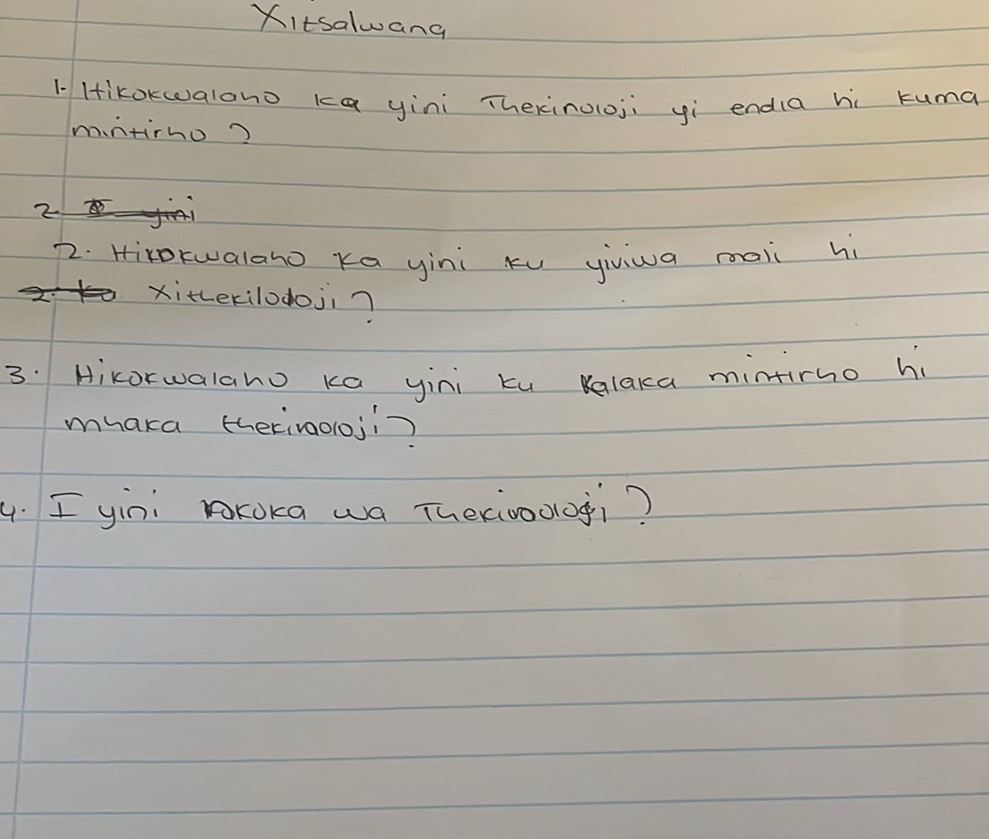 Xitsalwana
1. Hikokwalaho ka yini Thekinoloji yi endla hi kuma
mintirho ?
2
2. Hikokwalaho ka yini ku yiviwa mali hi
Xithekilodoji ?
3. Hikokwalaho ka yini ku kalaka mintirho hi
mhaka thekinoloji ?
4. I yini wa